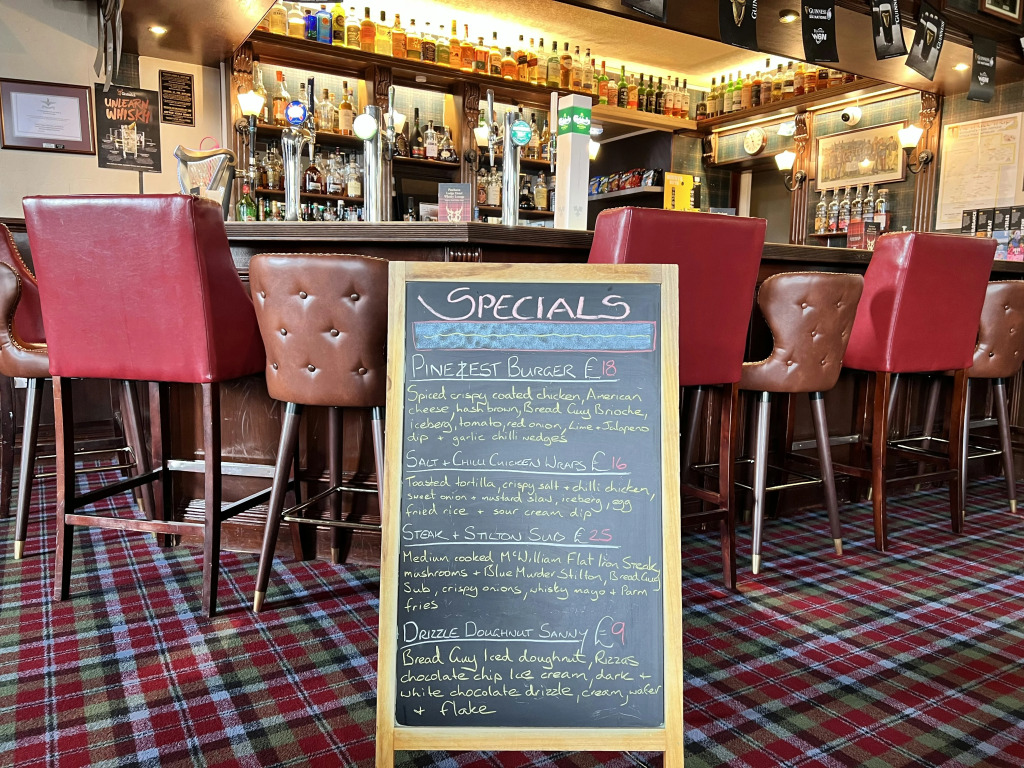 GUINNESS
SIX NATIONS
UNLEARN
WHISKY
Carlsberg
SPECIALS
PINEZZEST BURGER £18
Spiced crispy coated chicken, American
cheese, hash brown, Bread Guy Brioche,
iceberg, tomato, red onion, Lime + Jalapeno
dip + garlic chilli wedges
SALT + CHILLI CHICKEN WRAPS £16
Toasted tortilla, crispy salt + chilli chicken,
sweet onion + mustard slaw, iceberg, egg
fried rice + sour cream dip
STEAK + STILTON SUB £25
Medium cooked McWilliam Flat Iron Steak,
mushrooms + Blue Murder Stilton, Bread Guy
Sub, crispy onions, whisky mayo + Parm
fries
DRIZZLE DOUGHNUT SANNY £9
Bread Guy Iced doughnut, Rizzas
chocolate chip Ice cream, dark +
white chocolate drizzle, cream, wafer
+ flake